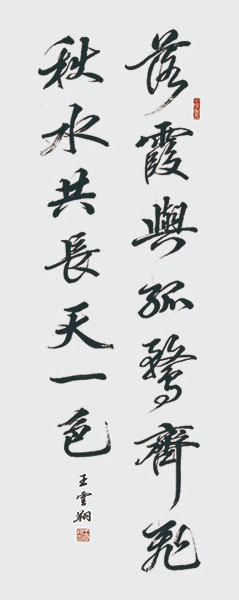 落霞與孤鶩齊飛
秋水共長天一色
王雲翔